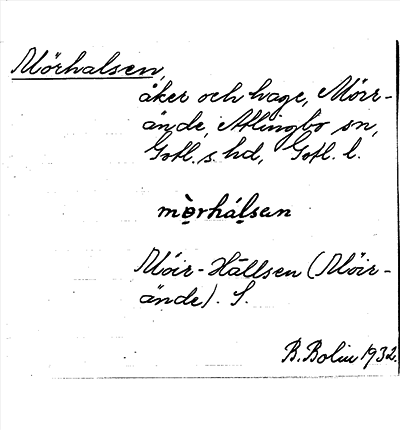 Mörhalsen,
åker och hage, Möir-
ände, Atlingbo sn,
Gotl. s. hd, Gotl. l.
mè̤rhálsan
Möir-Hållsen (Möir-
ände). S.
B. Bolin 1932.